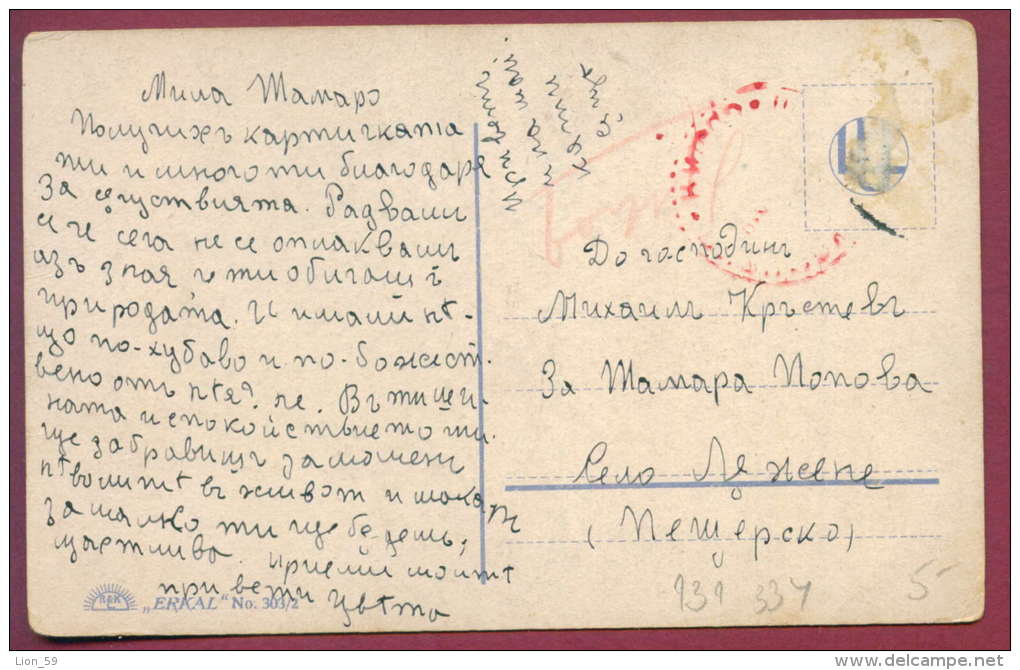 Мила Тамаро
Получихъ картичката
ти и много ти благодаря
За чувствията. Радваши
се че сега не се оплаквашъ
азъ зная че ти обичаш
природата. И има ли нѣ-
що по-хубаво и по-божест-
вено отъ нея? не. Въ тиши-
ната и спокойствието ти
ще забравишъ за моментъ
въ живот и макаръ
за малко ти ще бѫдешъ
щастлива. Приеми моитѣ
привети Цвѣта
До господинъ
Михаилъ Кръстевъ
За Тамара Попова
Село Лѫжене
(Пещерско)
R&K
„ERKAL" No. 303/2
131 334 5
Lion_59